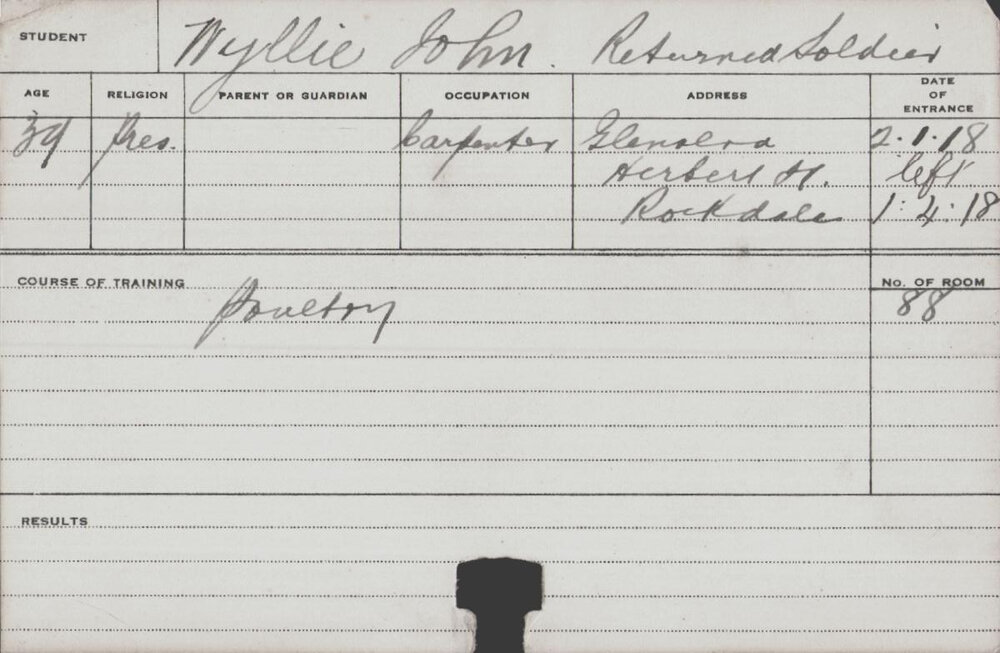 STUDENT Wyllie John. Returned Soldier
AGE RELIGION PARENT OR GUARDIAN OCCUPATION ADDRESS DATE OF ENTRANCE
39 Pres. Carpenter 2.1.18
Herbert St. left
Rockdale 1:4:18
COURSE OF TRAINING No. OF ROOM
Poultry 88
RESULTS